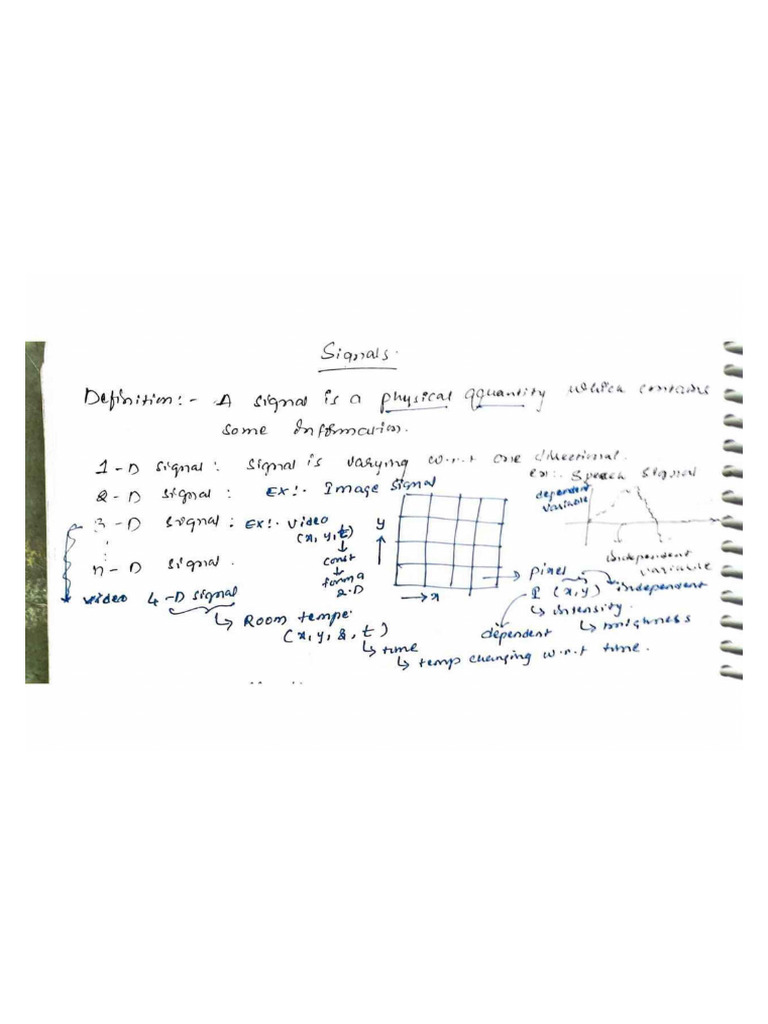 Signals.
Definition:- A signal is a physical qquantity which contains
some information.
1-D signal: signal is varying w.r.t one dimectional.
ex:- Speech signal
2-D signal: Ex:- Image Signal
dependent variable
3-D signal: Ex:- video
(x, y, t)
const
forma
2-D
y
x
independent variable
n-D signal.
pixel
I (x,y) independent
intensity.
dependent
video 4-D signal
Room tempe.
(x, y, &, t)
time
temp changing w.r.t time.